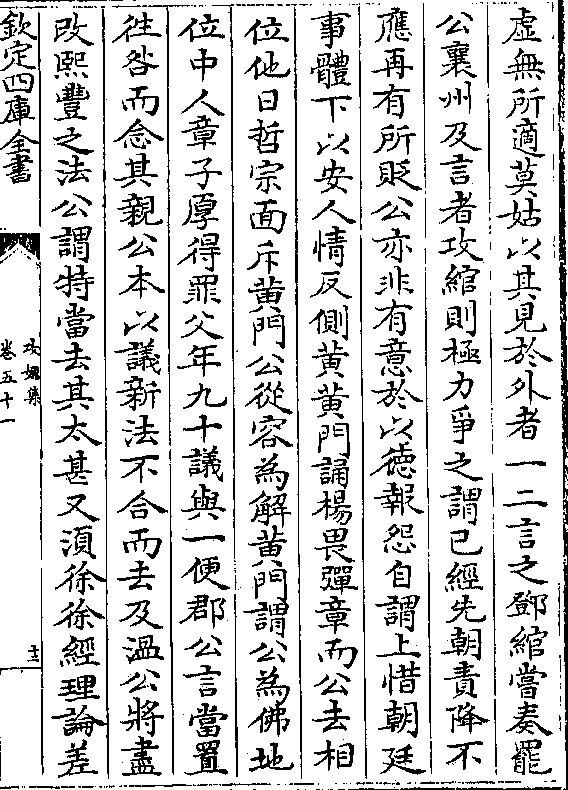 虚無所適莫姑以其見於外者一二言之鄧綰嘗奏罷
公襄州及言者攻綰則極力爭之謂已經先朝責降不
應再有所貶公亦非有意於以徳報怨自謂上惜朝廷
事體下以安人情反側黄黄門誦楊畏彈章而公去相
位他日哲宗面斥黄門公從容為解黄門謂公為佛地
位中人章子厚得罪父年九十議與一便郡公言當置
徃咎而念其親公本以議新法不合而去及温公將盡
改熙豐之法公謂特當去其太甚又湏徐徐經理論差
欽定四庫全書
攻媿集
卷五十一
十三